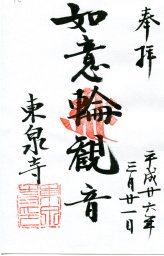 奉拝
平成廿六年
三月廿一日
如意輪観音
東泉寺